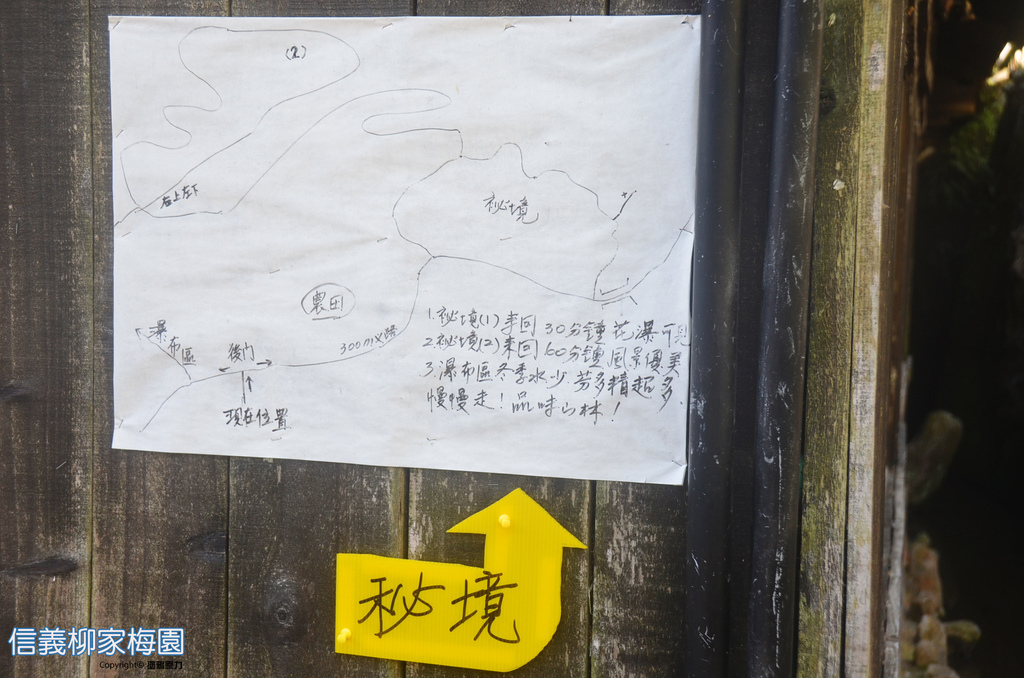 (2)
右上左下
秘境
農田
瀑
布區
後門
300m叉路
現在位置
1.秘境(1)來回30分鐘花瀑可
2.秘境(2)來回60分鐘風景優美
3.瀑布區冬季水少.芬多精超多.
慢慢走!品味山林!
秘境
信義柳家梅園
Copyright ©